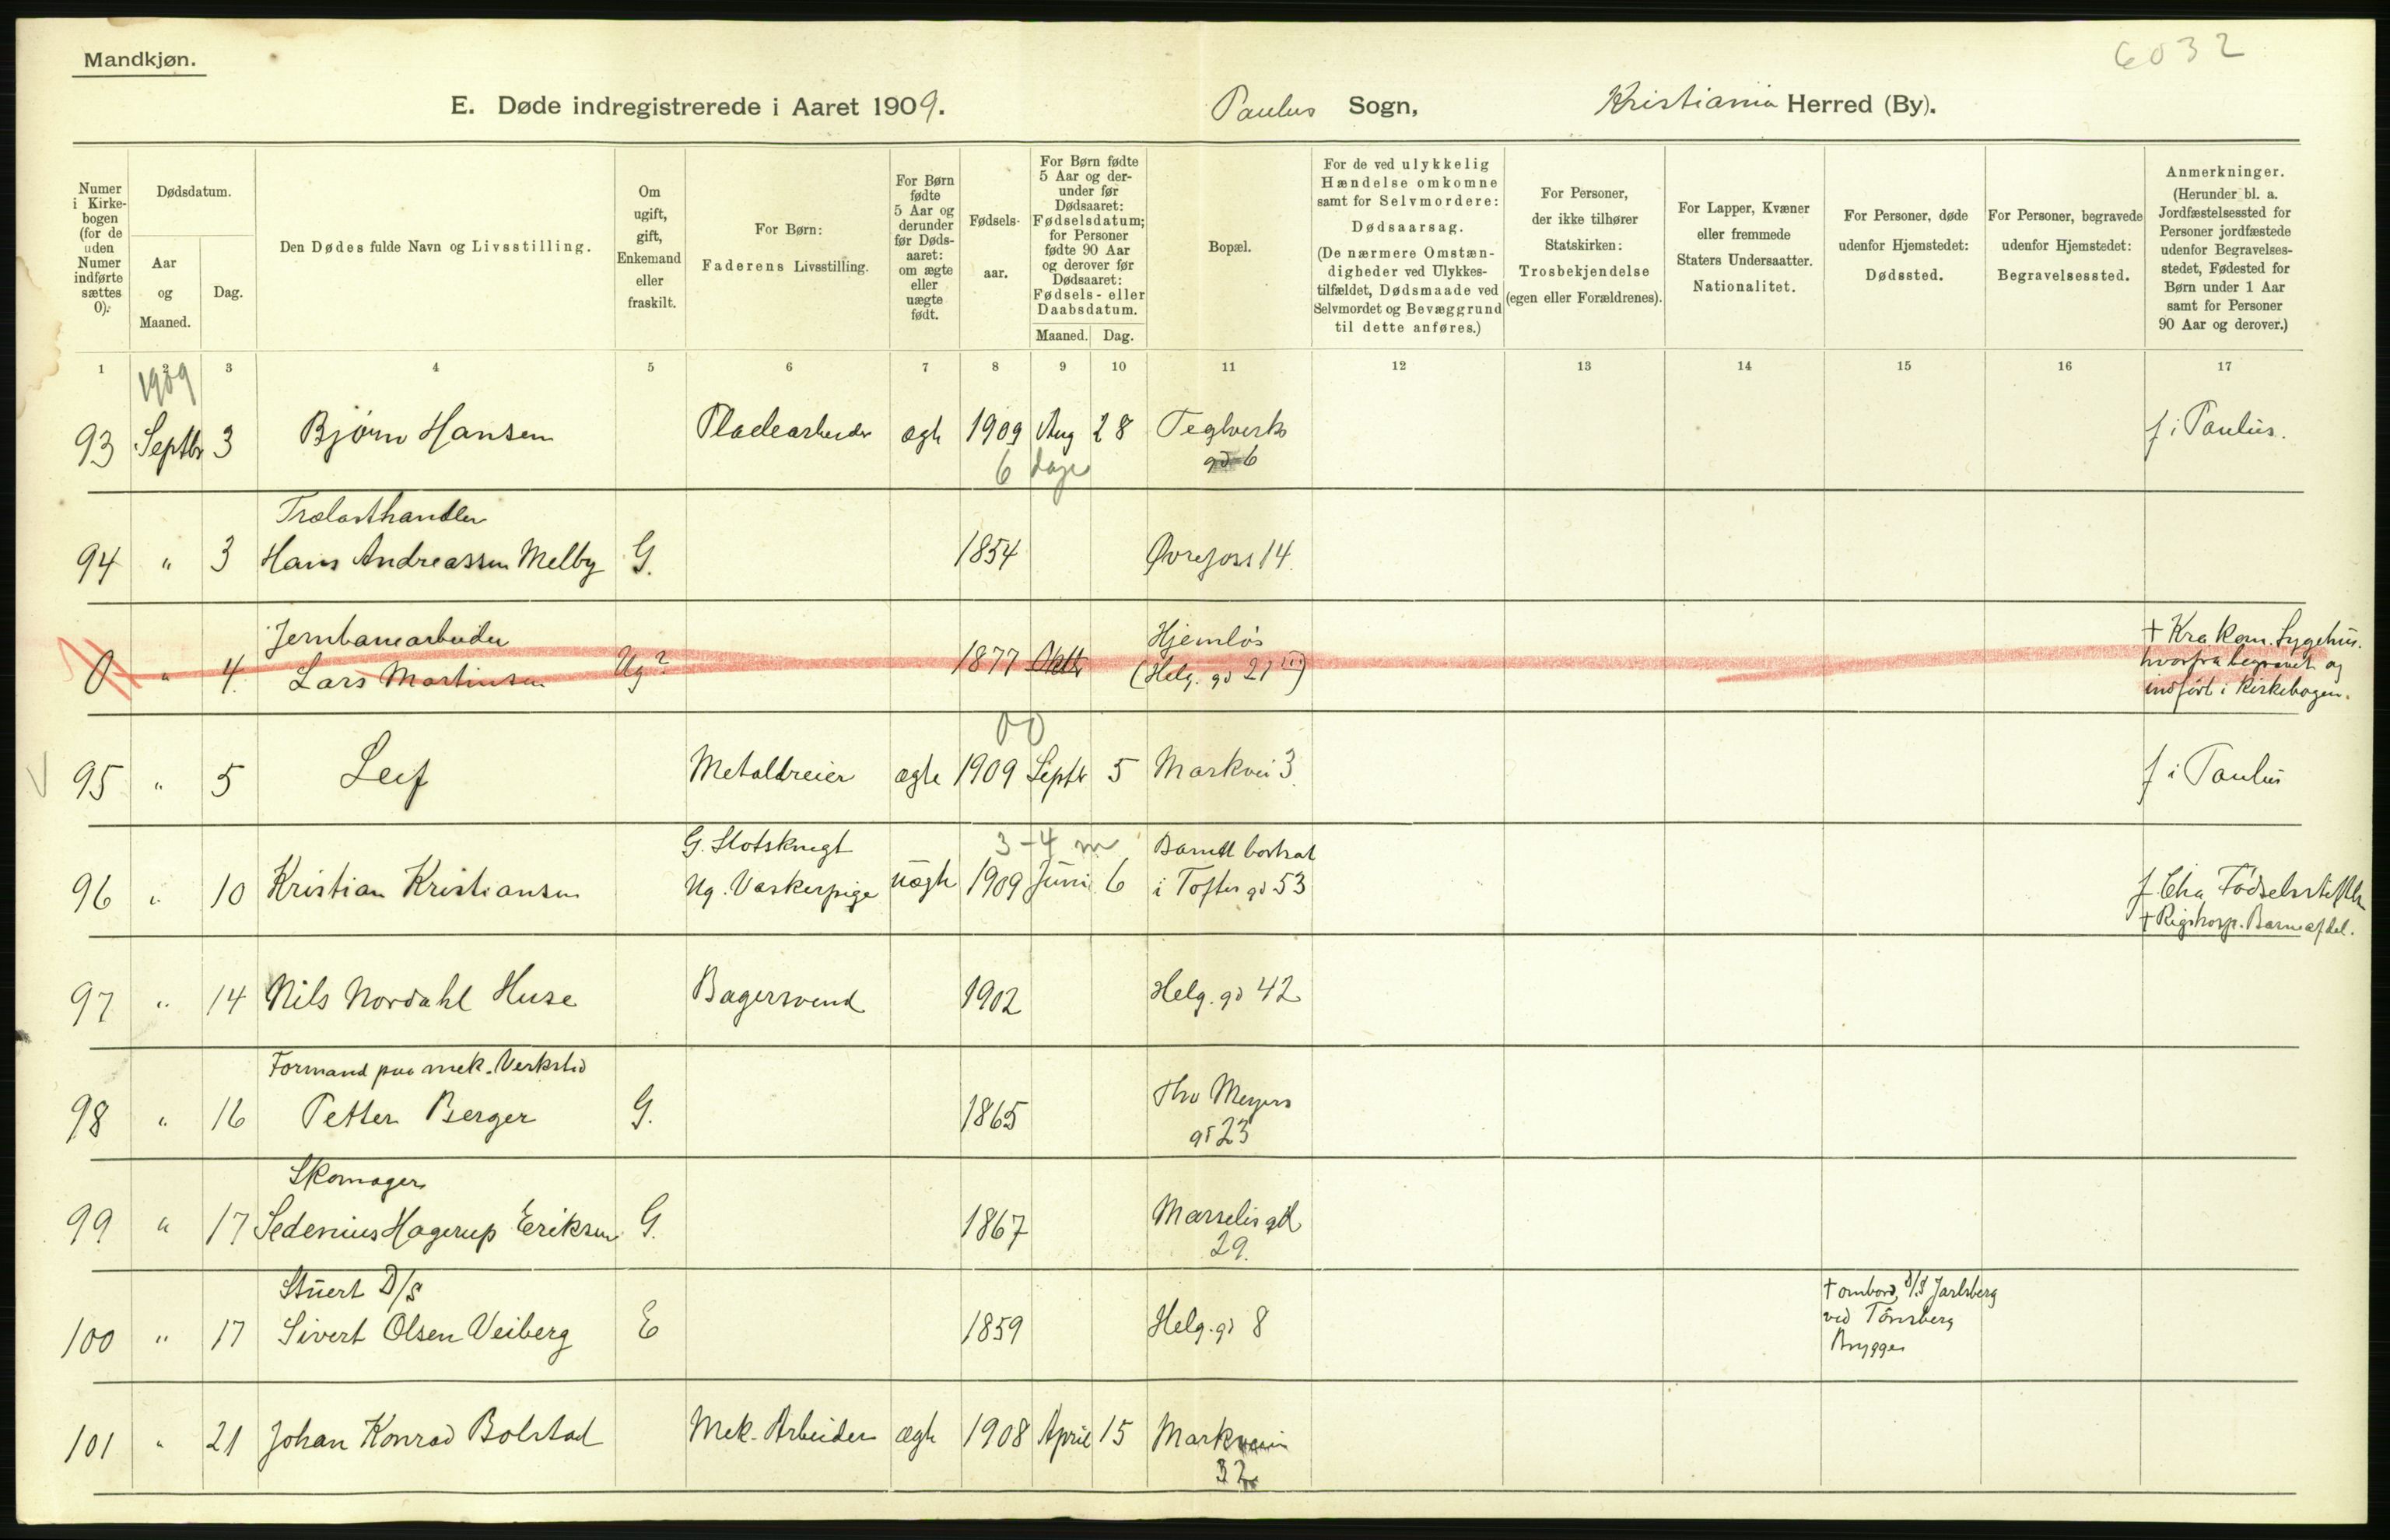 Mandkjøn.
6032
E. Døde indregistrerede i Aaret 1909. Paulus Sogn, Kristiania Herred (By).
Numer i Kirkebogen (for de uden Numer indførte sættes 0):
Dødsdatum.
Aar og Maaned.
Dag.
Den Dødes fulde Navn og Livsstilling.
Om ugift, gift, Enkemand eller fraskilt.
For Børn: Faderens Livsstilling.
For Børn fødte 5 Aar og derunder før Dødsaaret: om ægte eller uægte født.
Fødselsaar.
For Børn fødte 5 Aar og derunder før Dødsaaret: Fødselsdatum; for Personer fødte 90 Aar og derover før Dødsaaret: Fødsels- eller Daabsdatum.
Maaned. Dag.
Bopæl.
For de ved ulykkelig Hændelse omkomne samt for Selvmordere: Dødsaarsag. (De nærmere Omstændigheder ved Ulykkestilfældet, Dødsmaade ved Selvmordet og Bevæggrund til dette anføres.)
For Personer, der ikke tilhører Statskirken: Trosbekjendelse (egen eller Forældrenes).
For Lapper, Kvæner eller fremmede Staters Undersaatter. Nationalitet.
For Personer, døde udenfor Hjemstedet: Dødssted.
For Personer, begravede udenfor Hjemstedet: Begravelsessted.
Anmerkninger. (Herunder bl. a. Jordfæstelsessted for Personer jordfæstede udenfor Begravelsesstedet, Fødested for Børn under 1 Aar samt for Personer 90 Aar og derover.)
1 2 3 4 5 6 7 8 9 10 11 12 13 14 15 16 17
1909
93 Septbr 3 Bjørn Hansen Pladearbeider ægte 1909 Aug 28 Teglverks f i Paulus.
6 dage gd 6
Trælasthandler
94 " 3 Hans Andreassen Melby G. 1854 Øvrefoss 14.
Jernbanearbeider Hjemløs + Kra Kom. Sygehus.
0 " 4. Lars Martinsen Ug? 1877 (Helg. gd 21 III) hvorfra begravet og
indført i Kirkebogen.
00
95 " 5 Leif Metaldreier ægte 1909 Septr 5 Markvei 3. f i Paulus
G. Slotsknegt 3-4 m Barnet bortsat
96 " 10 Kristian Kristiansen Ug. Vaskerpige uægte 1909 Juni 6 i Toftes gd 53 f Chra Fødselsstiftelse
+ Rigshosp. Barneafdel.
97 " 14 Nils Nordahl Huse Bagersvend 1902 Helg. gd 42
Formand paa mek. Verksted
98 " 16 Petter Berger G. 1865 Thv Meyers
gd 23
Skomager
99 " 17 Sedenius Hagerup Eriksen G. 1867 Marselis gd
29.
Stuert D/S + ombord D/S Jarlsberg
100 " 17 Sivert Olsen Veiberg E 1859 Helg. gd 8 ved Tønsberg
Brygge
101 " 21 Johan Konrad Bolstad Mek. Arbeider ægte 1908 April 15 Markveien
32